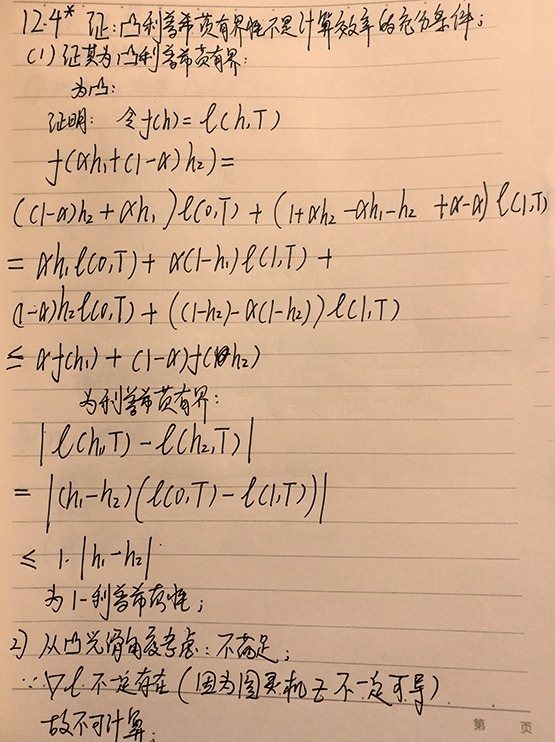 12.4* 证:凸利普希茨有界性不是计算效率的充分条件;
(1) 证其为凸利普希茨有界:
为凸:
证明: 令f(h)=ℓ(h,T)
f(αh₁+(1-α)h₂)=
((1-α)h₂+αh₁)ℓ(0,T)+(1+αh₂-αh₁-h₂+α-α)ℓ(1,T)
=αh₁ℓ(0,T)+α(1-h₁)ℓ(1,T)+
(1-α)h₂ℓ(0,T)+((1-h₂)-α(1-h₂))ℓ(1,T)
≤αf(h₁)+(1-α)f(h₂)
为利普希茨有界:
|ℓ(h₁,T)-ℓ(h₂,T)|
=|(h₁-h₂)(ℓ(0,T)-ℓ(1,T))|
≤1·|h₁-h₂|
为1-利普希茨性;
2) 从凸光滑角度考虑:不满足;
∵∇ℓ不一定存在(因为图灵机T不一定可导)
故不可计算;
第 页